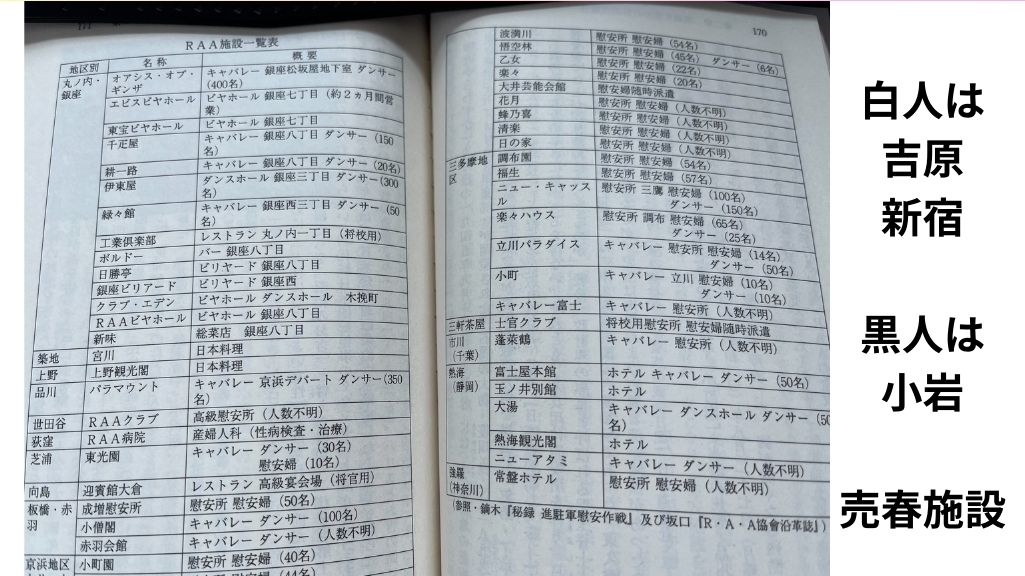 171
RAA施設一覧表
地区別 名称 概要
丸ノ内・銀座 オアシス・オブ・ギンザ キャバレー 銀座松坂屋地下室 ダンサー(400名)
エビスビヤホール ビヤホール 銀座七丁目(約2ヵ月間営業)
東宝ビヤホール ビヤホール 銀座七丁目
千疋屋 キャバレー 銀座八丁目 ダンサー(150名)
耕一路 キャバレー 銀座八丁目 ダンサー(20名)
伊東屋 ダンスホール 銀座三丁目 ダンサー(300名)
緑々館 キャバレー 銀座西三丁目 ダンサー(50名)
工業倶楽部 レストラン 丸ノ内一丁目(将校用)
ボルドー バー 銀座八丁目
日勝亭 ビリヤード 銀座八丁目
銀座ビリアード ビリヤード 銀座西
クラブ・エデン ビヤホール ダンスホール 木挽町
RAAビヤホール ビヤホール 銀座八丁目
新味 総菜店 銀座八丁目
築地 宮川 日本料理
上野 上野観光閣 日本料理
品川 パラマウント キャバレー 京浜デパート ダンサー(350名)
世田谷 RAAクラブ 高級慰安所(人数不明)
荻窪 RAA病院 産婦人科(性病検査・治療)
芝浦 東光園 キャバレー ダンサー(30名)
慰安婦(10名)
向島 迎賓館大倉 レストラン 高級宴会場(将官用)
板橋・赤羽 成増慰安所 慰安所 慰安婦(50名)
小僧閣 キャバレー ダンサー(100名)
赤羽会館 キャバレー ダンサー(人数不明)
京浜地区 小町園 慰安所 慰安婦(40名)
170
波満川 慰安所 慰安婦(54名)
悟空林 慰安所 慰安婦(45名) ダンサー(6名)
乙女 慰安所 慰安婦(22名)
楽々 慰安所 慰安婦(20名)
大井芸能会館 慰安婦随時派遣
花月 慰安所 慰安婦(人数不明)
蜂乃喜 慰安所 慰安婦(人数不明)
清楽 慰安所 慰安婦(人数不明)
日の家 慰安所 慰安婦(人数不明)
三多摩地区 調布園 慰安所 慰安婦(54名)
福生 慰安所 慰安婦(57名)
ニュー・キャッスル 慰安所 三鷹 慰安婦(100名)
ダンサー(150名)
楽々ハウス 慰安所 調布 慰安婦(65名)
ダンサー(25名)
立川パラダイス キャバレー 慰安所 慰安婦(14名)
ダンサー(50名)
小町 キャバレー 立川 慰安婦(10名)
ダンサー(10名)
キャバレー富士 キャバレー 慰安所(人数不明)
三軒茶屋 士官クラブ 将校用慰安所 慰安婦随時派遣
市川(千葉) 蓬萊鶴 キャバレー 慰安所(人数不明)
熱海(静岡) 富士屋本館 ホテル キャバレー ダンサー(50名)
玉ノ井別館 ホテル
大湯 キャバレー ダンスホール ダンサー(50名)
熱海観光閣 ホテル
ニューアタミ キャバレー ダンサー(人数不明)
強羅(神奈川) 常盤ホテル 慰安所 慰安婦(人数不明)
(参照・鏑木『秘録 進駐軍慰安作戦』及び坂口『R・A・A協會沿革誌』)
白人は
吉原
新宿
黒人は
小岩
売春施設